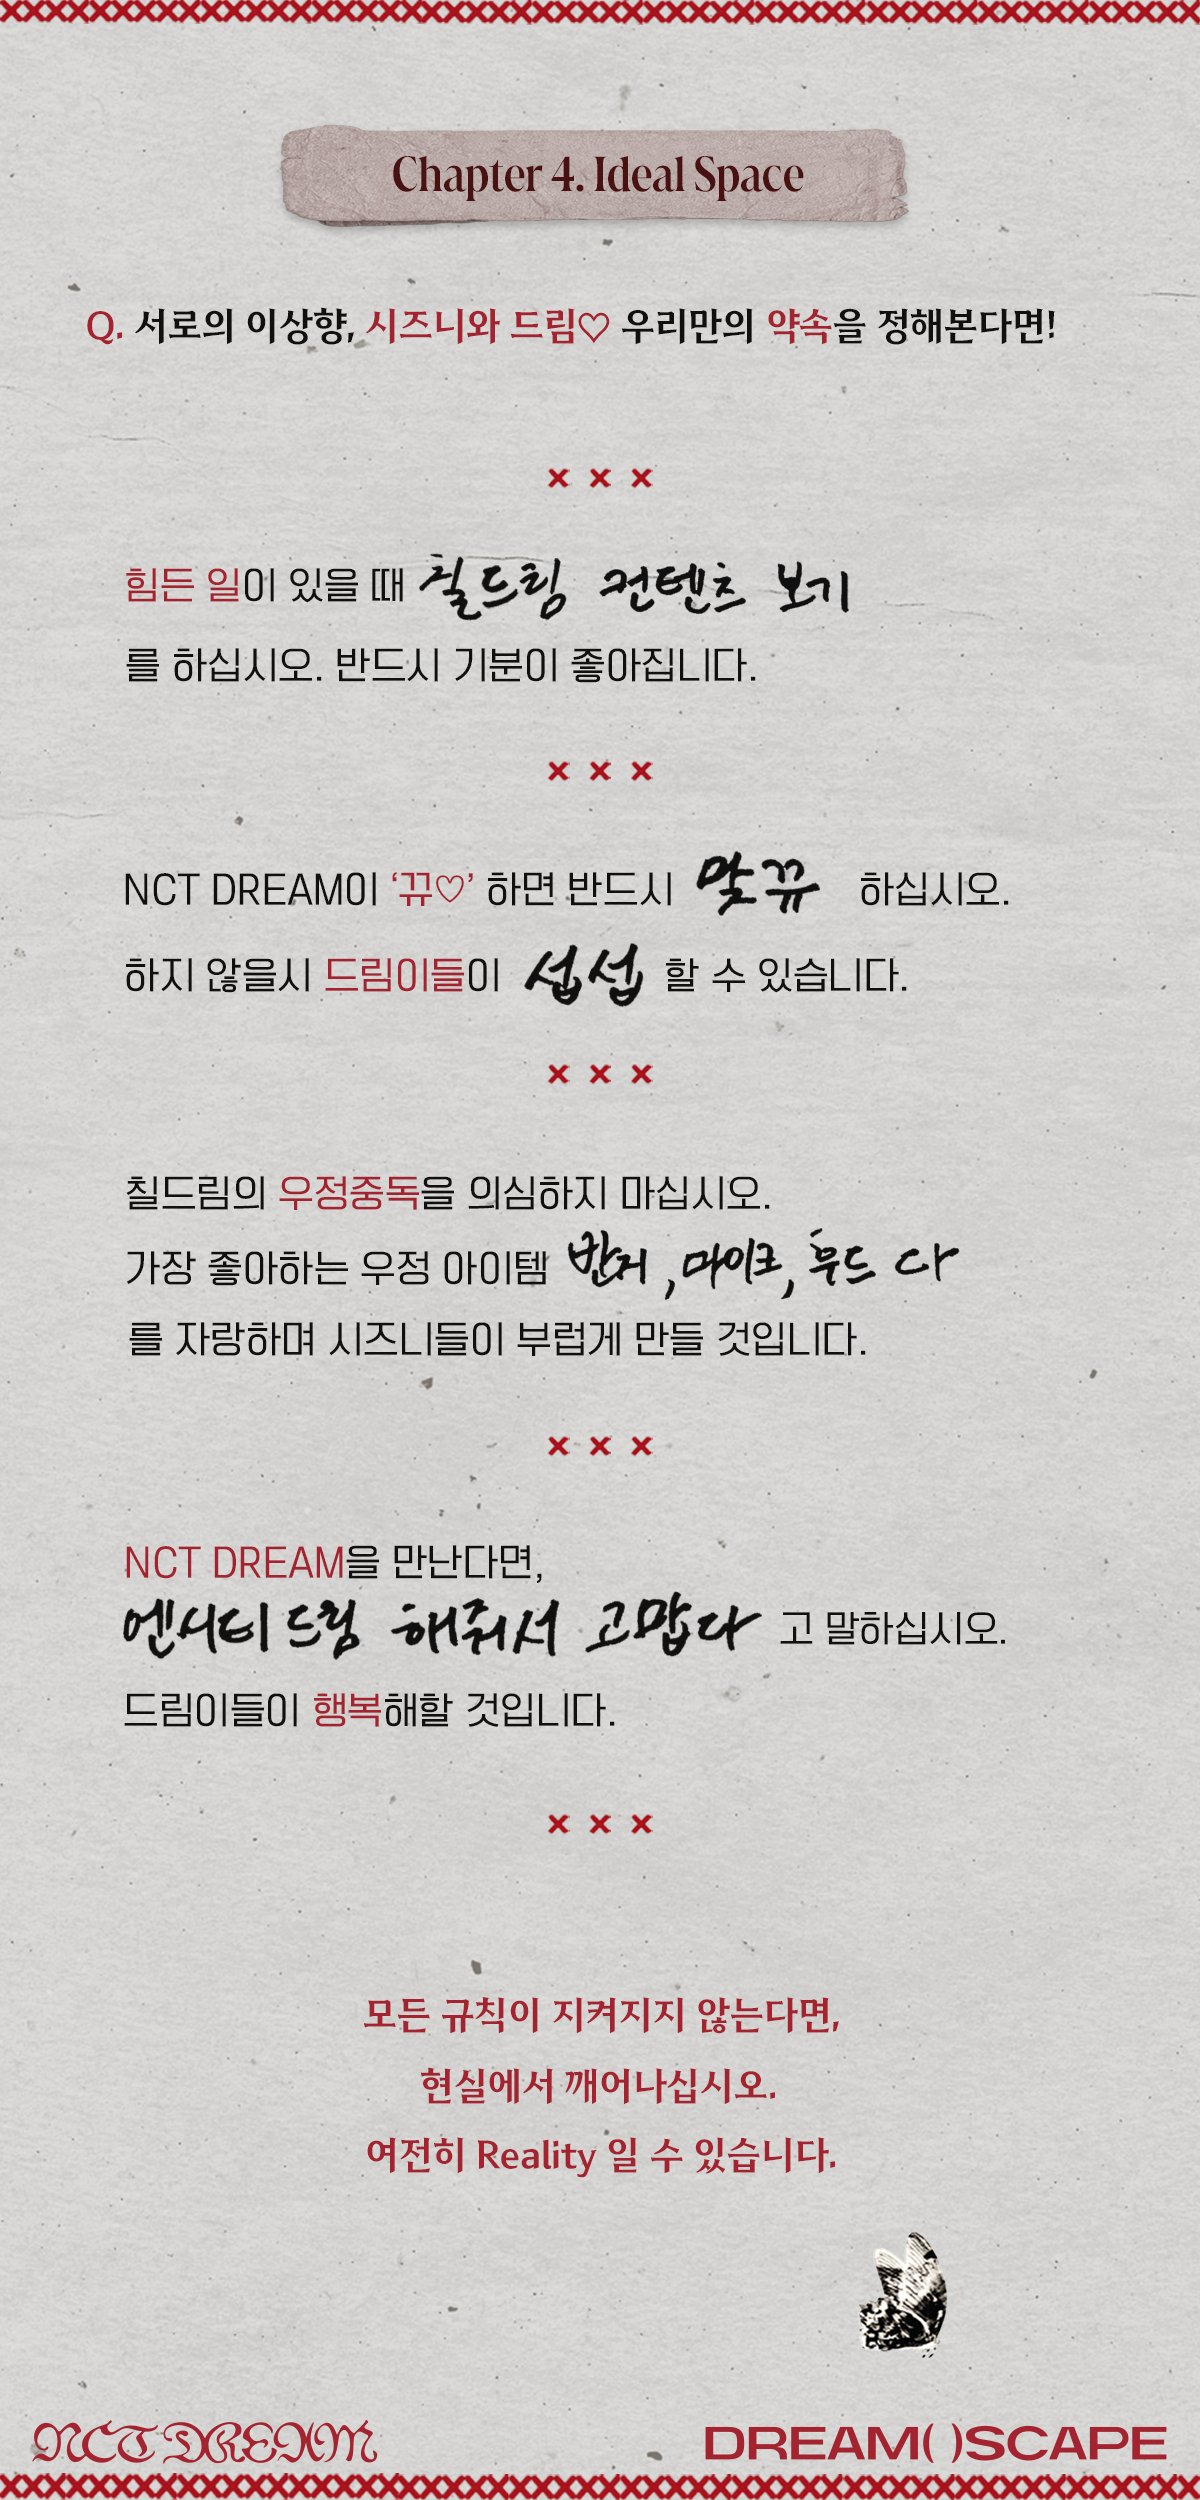 Chapter 4. Ideal Space
Q. 서로의 이상향, 시즈니와 드림♡ 우리만의 약속을 정해본다면!
힘든 일이 있을 때 칠드림 컨텐츠 보기
를 하십시오. 반드시 기분이 좋아집니다.
NCT DREAM이 ‘뀨♡’ 하면 반드시 맞뀨 하십시오.
하지 않을시 드림이들이 섭섭 할 수 있습니다.
칠드림의 우정중독을 의심하지 마십시오.
가장 좋아하는 우정 아이템 반지, 마이크, 무드 다
를 자랑하며 시즈니들이 부럽게 만들 것입니다.
NCT DREAM을 만난다면,
엔시티 드림 해줘서 고맙다 고 말하십시오.
드림이들이 행복해할 것입니다.
모든 규칙이 지켜지지 않는다면,
현실에서 깨어나십시오.
여전히 Reality 일 수 있습니다.
NCT DREAM DREAM( )SCAPE